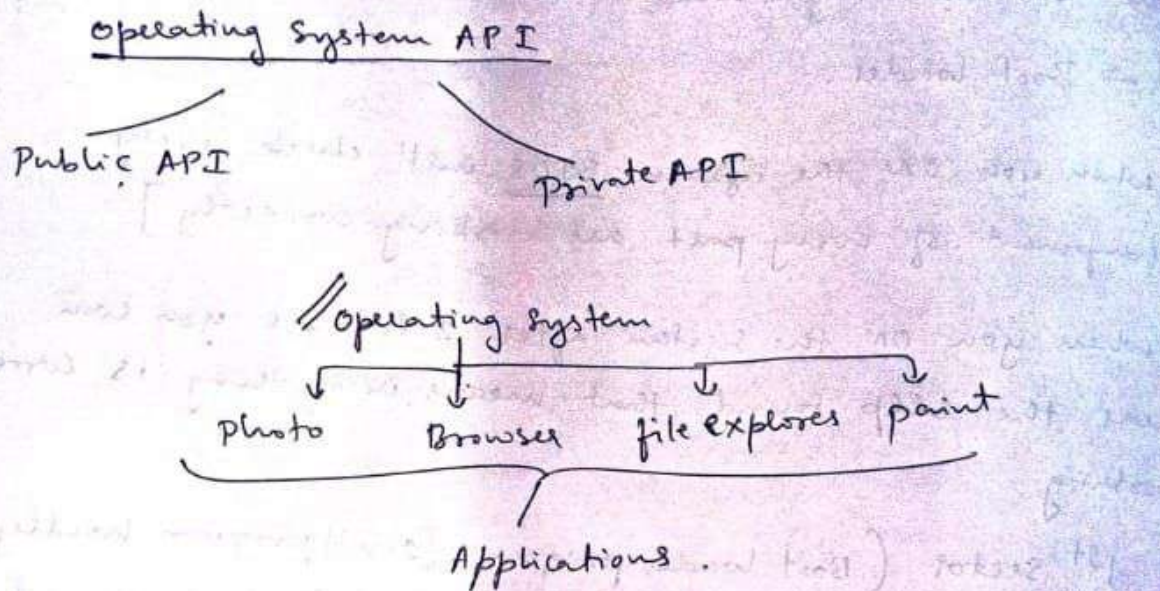 Operating System API
Public API
Private API
// Operating System
Photo Browser file explores paint
Applications.